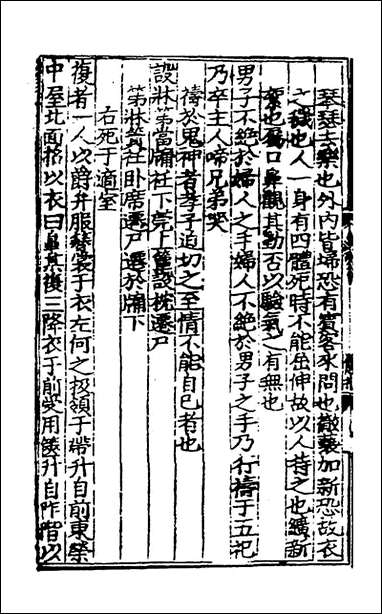 琴瑟去樂也外内皆埽恐有賓客來問也徹褻加新恐故衣
之穢也人一身有四體死時不能屈伸故以人持之也纊新
絮也屬口鼻觀其動否以驗氣之有無也
男子不絶於婦人之手婦人不絶於男子之手乃行禱于五祀
乃卒主人啼兄弟哭
禱於鬼神者孝子迫切之至情不能自已者也
設牀第當牖衽下莞上簟設枕遷尸
第牀簀衽卧席遷尸遷於牖下
右死于適室
復者一人以爵弁服簪裳于衣左何之扱領于帶升自前東榮
中屋北面招以衣曰皐某復三降衣于前受用篋升自阼階以